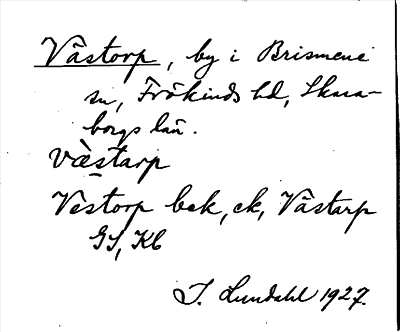 Västorp, by i Brismene
sn, Frökinds hd, Skara-
borgs län.
væ̀s̱tarp
Vestorp bek, ek, Västarp
GS, Kb
I. Lundahl 1927.